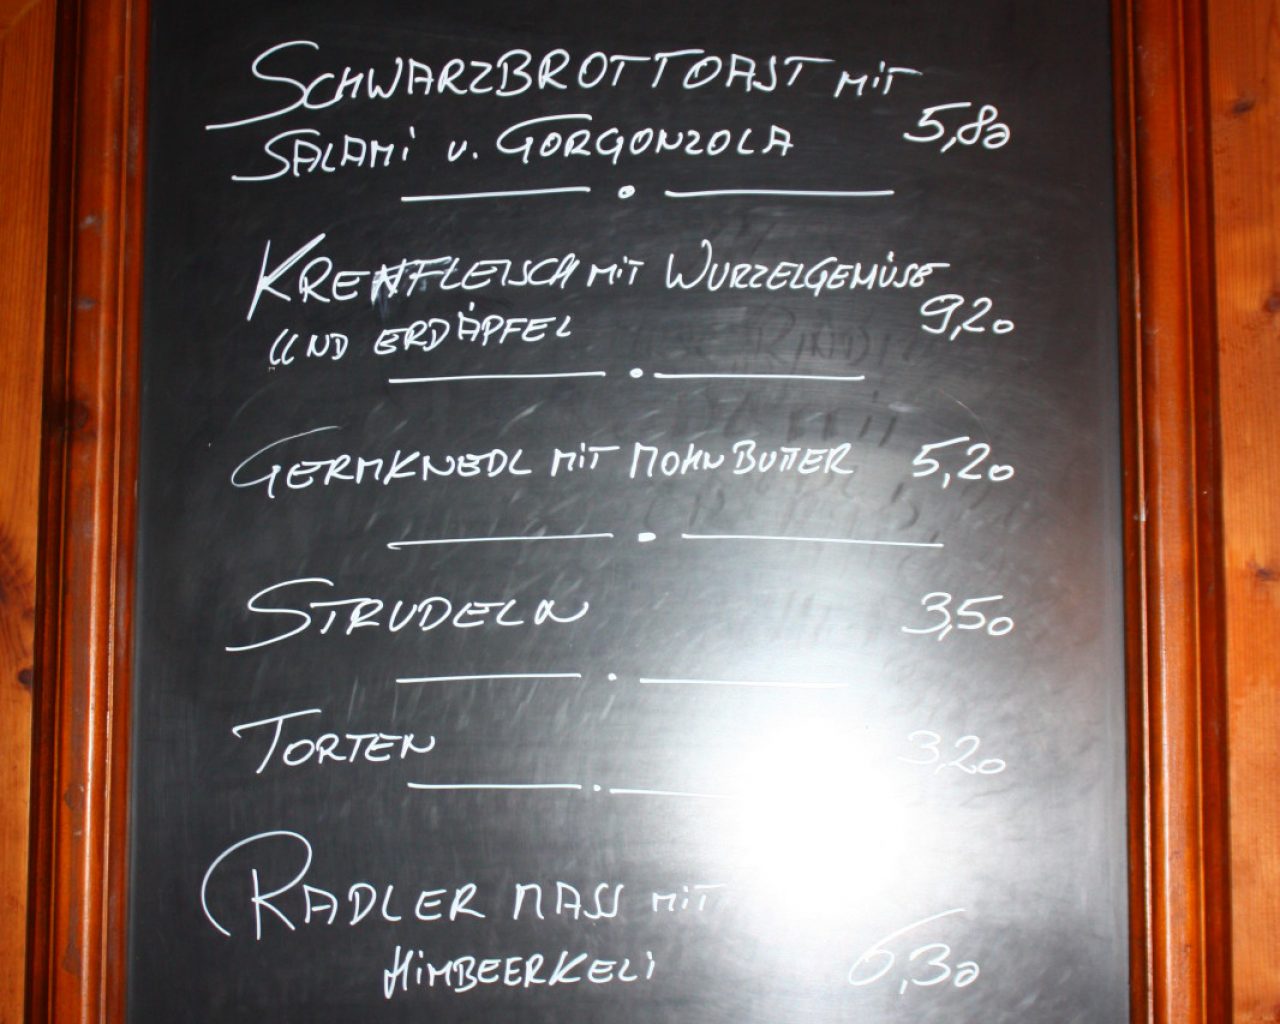 SCHWARZBROTTOAST MiT
SALAMi u. GORGONZOLA 5,80
KRENFLEISCH MiT WURZELGEMÜSE
UND ERDÄPFEL 9,20
GERMKNEDL MiT MOHNBUTTER 5,20
STRUDELN 3,50
TORTEN 3,20
RADLER MASS MiT
HiMBEERKELi 6,30